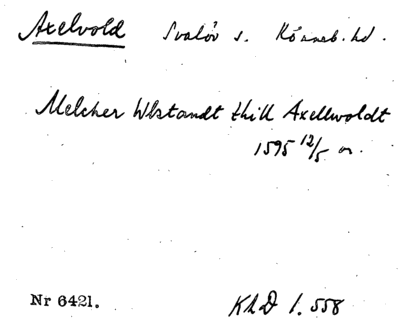 Axelvold Svalöv s. Rönneb. hd.
Melcher Wlstandt thill Axellwoldt
1595 12/5 or.
Nr 6421.
KhD 1. 558